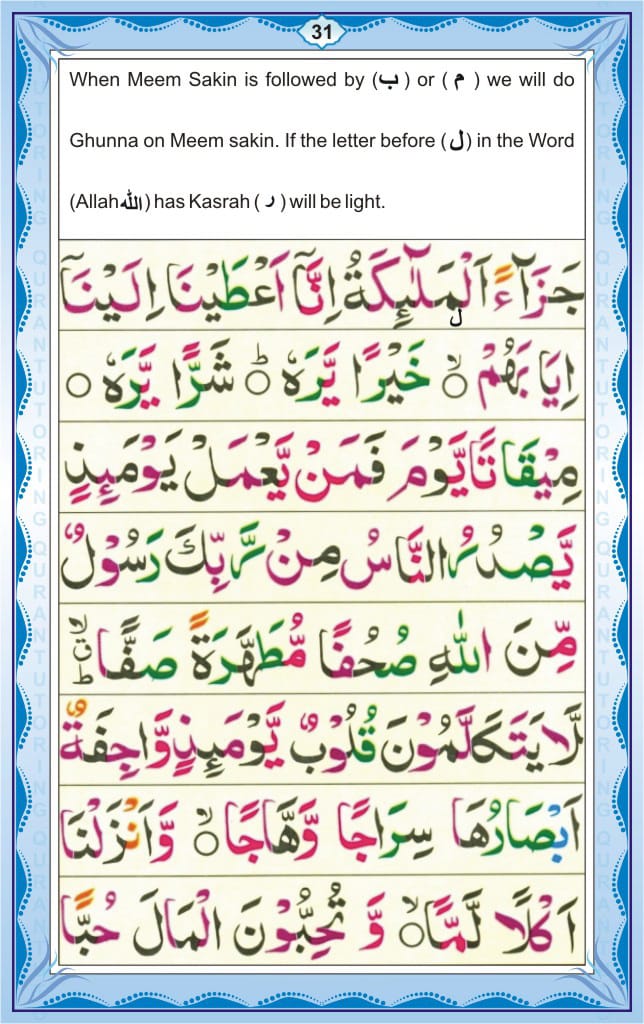 31
When Meem Sakin is followed by (ب) or ( م ) we will do
Ghunna on Meem sakin. If the letter before (ل) in the Word
(Allah الله) has Kasrah ( ر ) will be light.
جَزَآءً اَلْمَلٰٓئِكَةُ اِنَّآ اَعْطَيْنَا اِلَيْنَآ
ل
اِيَا بَهُمْ ۙ خَيْرًا يَّرَهٗ ؕ شَرًّا يَّرَهٗ ○
مِيْقَا تًا يَّوْمَ فَمَنْ يَّعْمَلْ يَوْمَئِذٍ
يَّصْدُرُ النَّاسُ مِنْ رَّبِّكَ رَسُوْلٌ
مِّنَ اللّٰهِ صُحُفًا مُّطَهَّرَةً صَفًّا
لَّا يَتَكَلَّمُوْنَ قُلُوْبٌ يَّوْمَئِذٍ وَّاجِفَةٌ
اَبْصَارُهَا سِرَاجًا وَّهَّاجًا ۙ وَّاَنْزَلْنَا
اَكْلًا لَّمًّا ۙ وَّ تُحِبُّوْنَ الْمَالَ حُبًّا
QURAN TUTORING QURAN TUTORING
QURAN TUTORING QURAN TUTORING